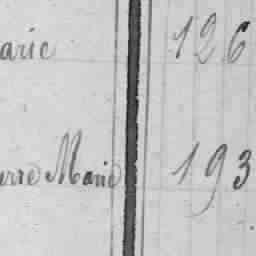 arie 126
erre Marie 193